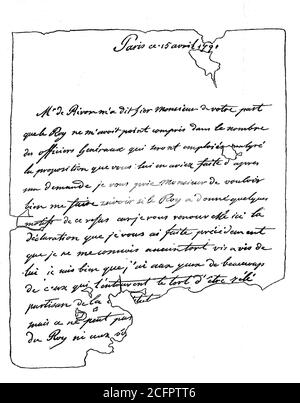 Paris ce 15 avril 1791
Mr de Biron m'a dit hier monsieur de votre part
que le Roy ne m'avoit point compris dans le nombre
des officiers Généraux qui seront employés malgré
la proposition que vous lui en aviez faite d'après
ma demande je vous prie Monsieur de vouloir
bien me faire savoir si le Roy a donné quelques
motifs de ce refus car je vous renouvelle ici la
déclaration que je vous ai faite précédemment
que je ne me connois aucun tort vis a vis de
lui je sais bien que j'ai aux yeux de beaucoup
de ceux qui l'entourent le tort d'être zélé
partisan de la
mais ce ne peut pas
du Roy ni aux
alamy
Image ID: 2CFPTT6
www.alamy.com